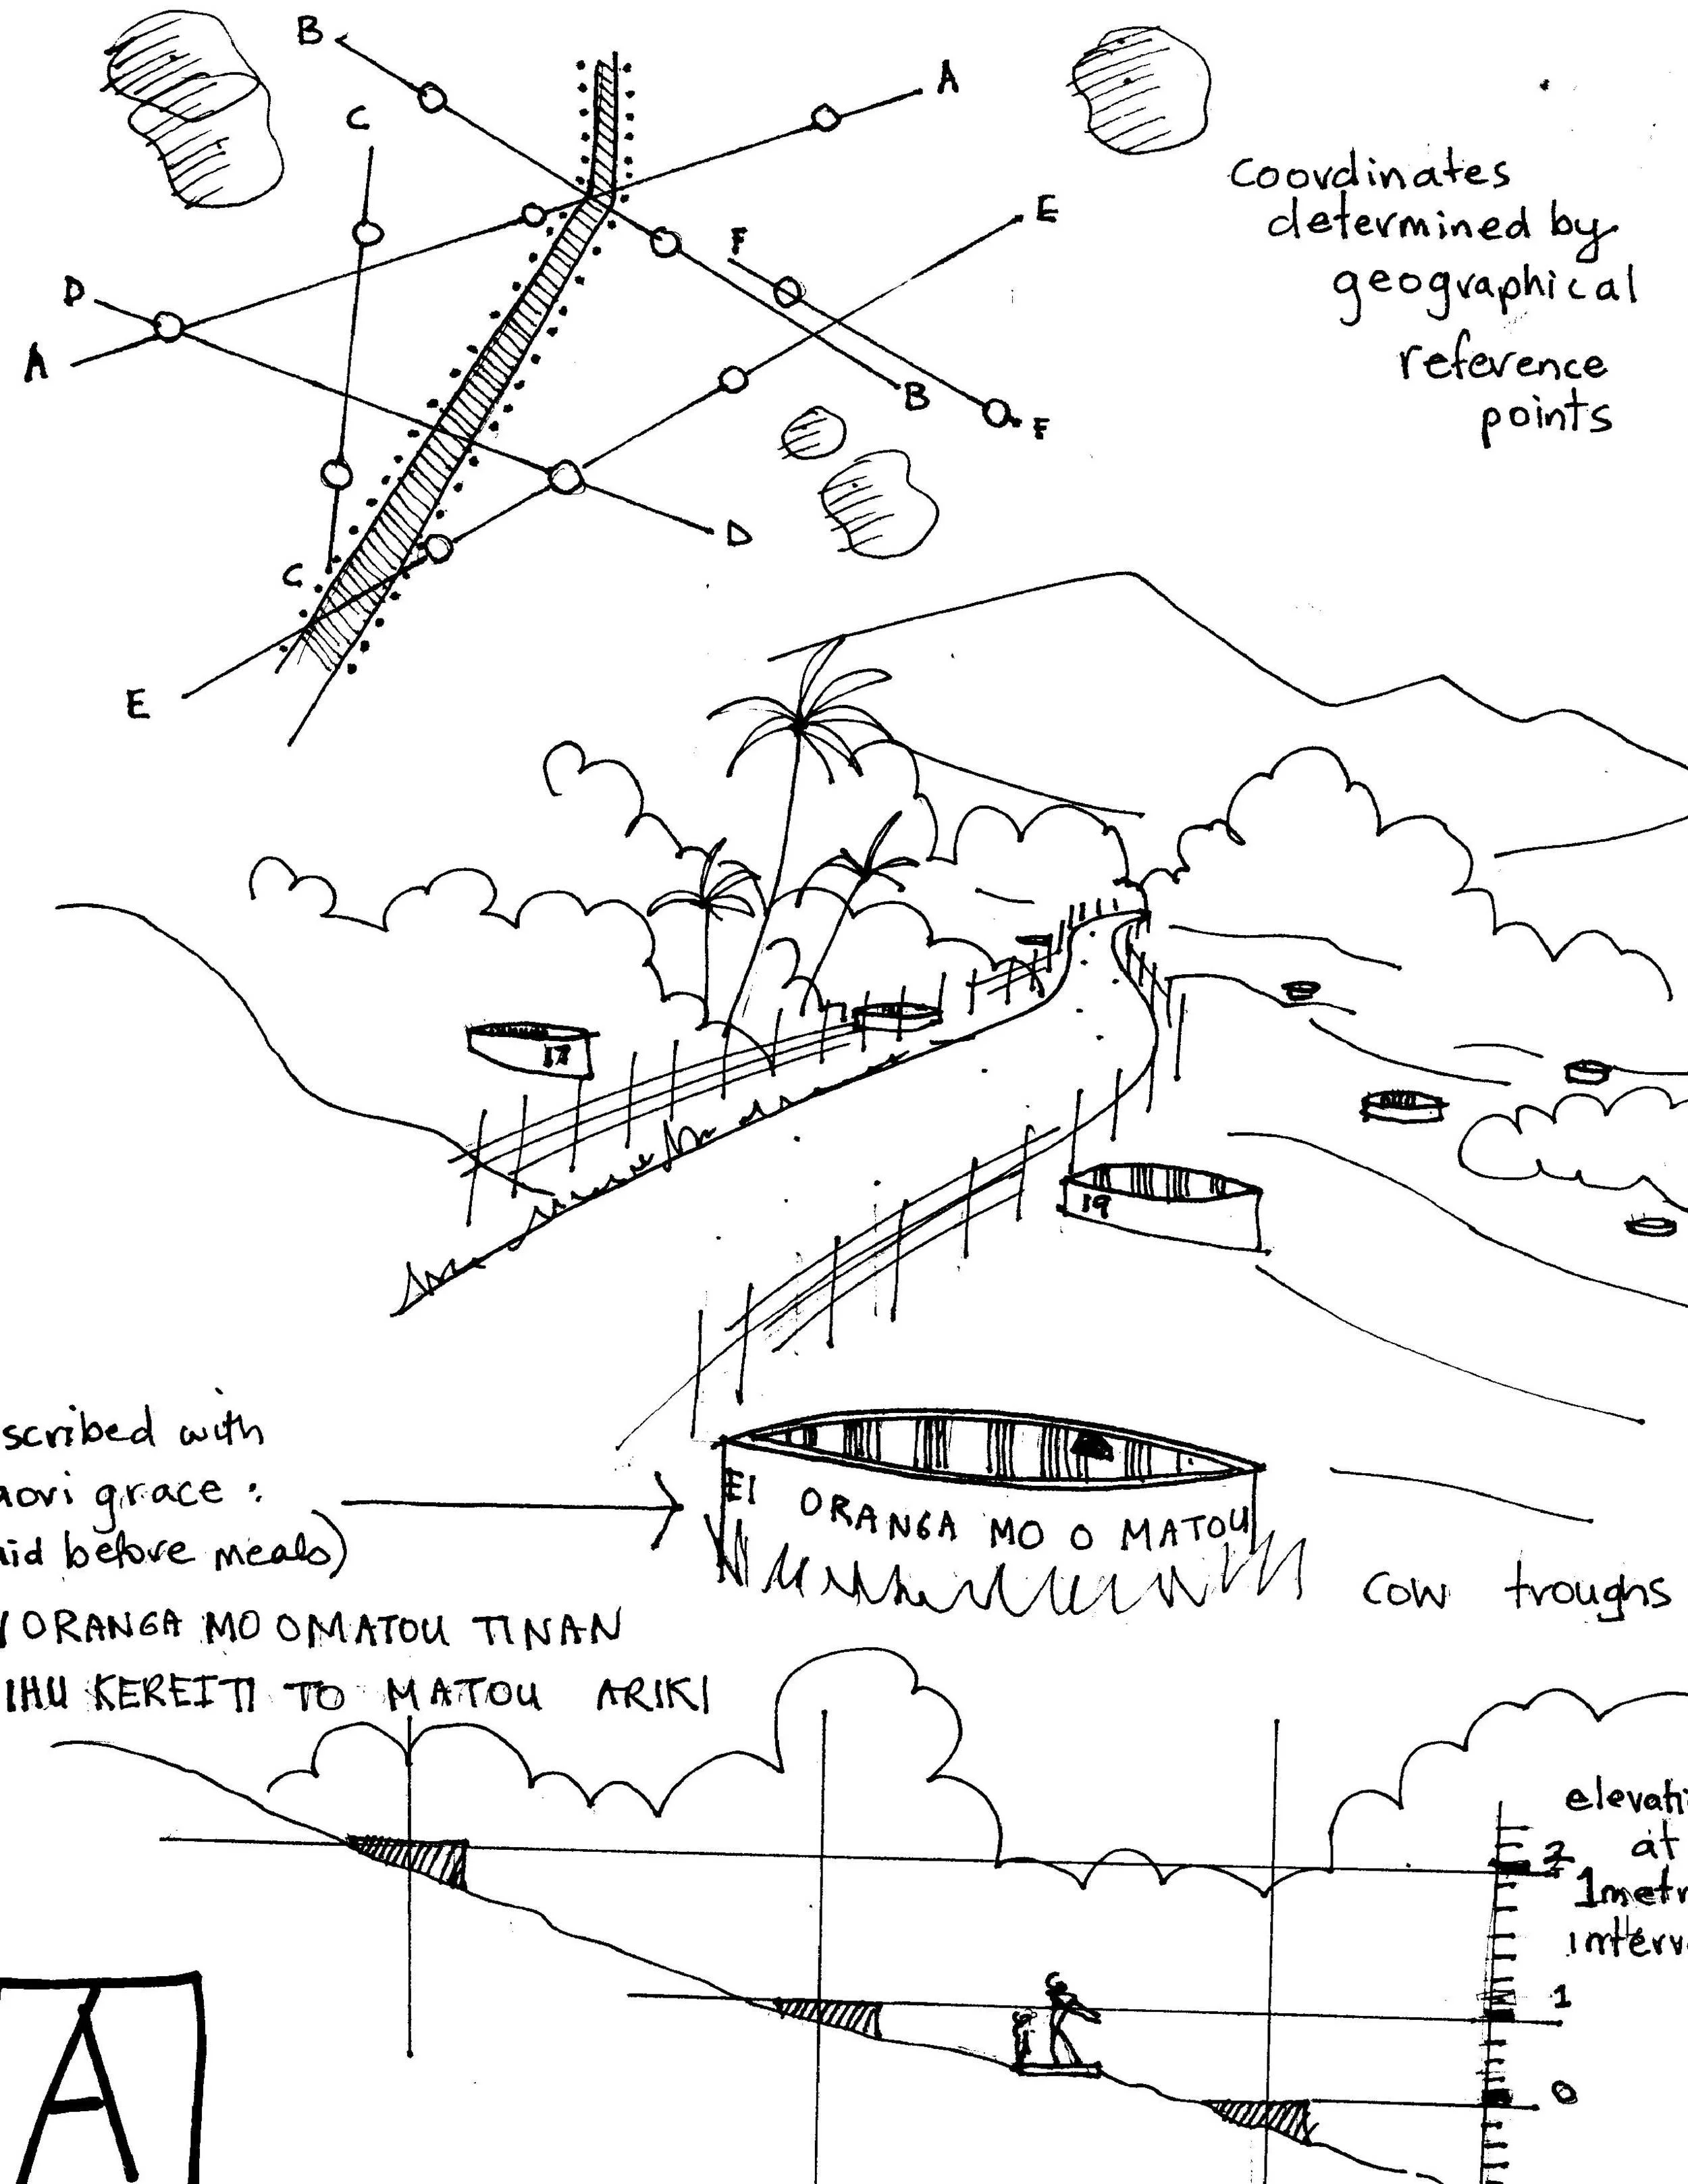 B
A
C
E
F
D
A
B
F
D
C
E
coordinates
determined by
geographical
reference
points
17
19
scribed with
aori grace :
aid before meals)
EI
ORANGA MO O MATOU
cow troughs
ORANGA MO OMATOU TINAN
IHU KEREITI TO MATOU ARIKI
elevati
at
1metr
interv
2
1
0
A